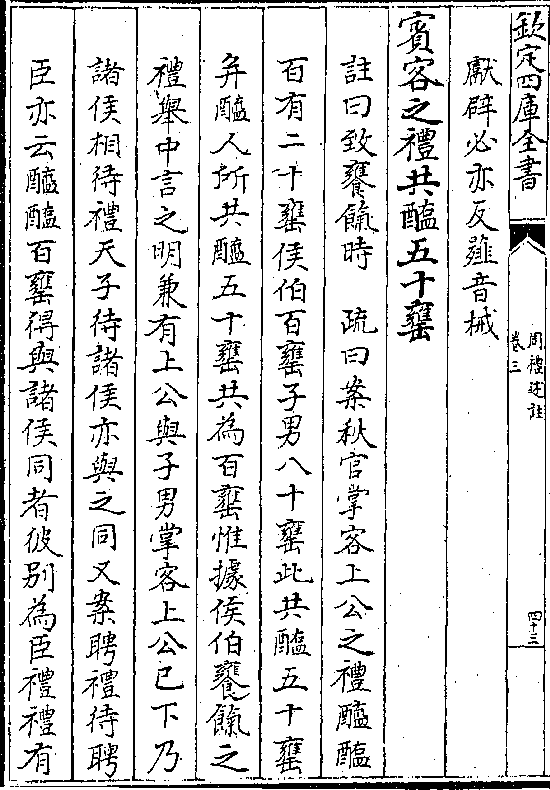 欽定四庫全書
周禮述註
卷三
四十三
獻辟必亦反䪥音械
賓客之禮共醢五十罋
註曰致饔餼時　疏曰案秋官掌客上公之禮醯醢
百有二十罋侯伯百罋子男八十罋此共醢五十罋
并醯人所共醯五十罋共為百罋惟據侯伯饔餼之
禮舉中言之明兼有上公與子男掌客上公已下乃
諸侯相待禮天子待諸侯亦與之同又案聘禮待聘
臣亦云醯醢百罋得與諸侯同者彼別為臣禮禮有